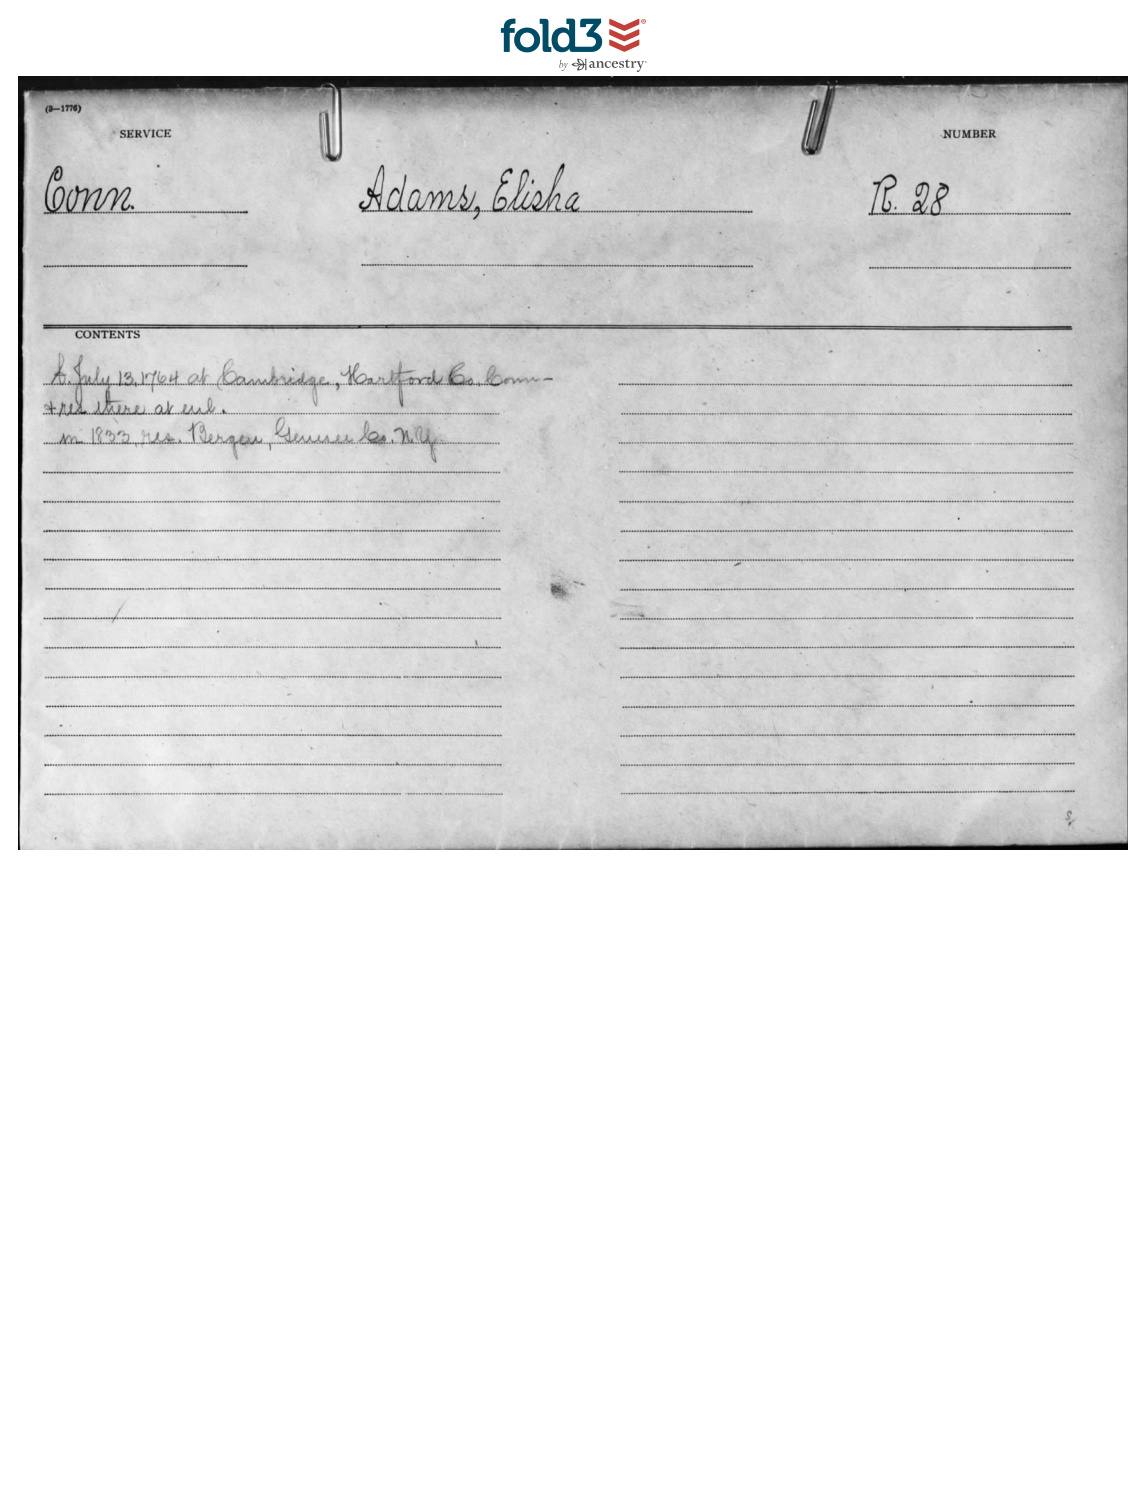 fold3®
by ancestry
(3—1776)
SERVICE
NUMBER
Conn.
Adams, Elisha
R. 28
CONTENTS
b. July 13, 1764 at Cambridge, Hartford Co. Conn—
+ res there at enl.
in 1833, res. Bergen, Genesee Co. N.Y.